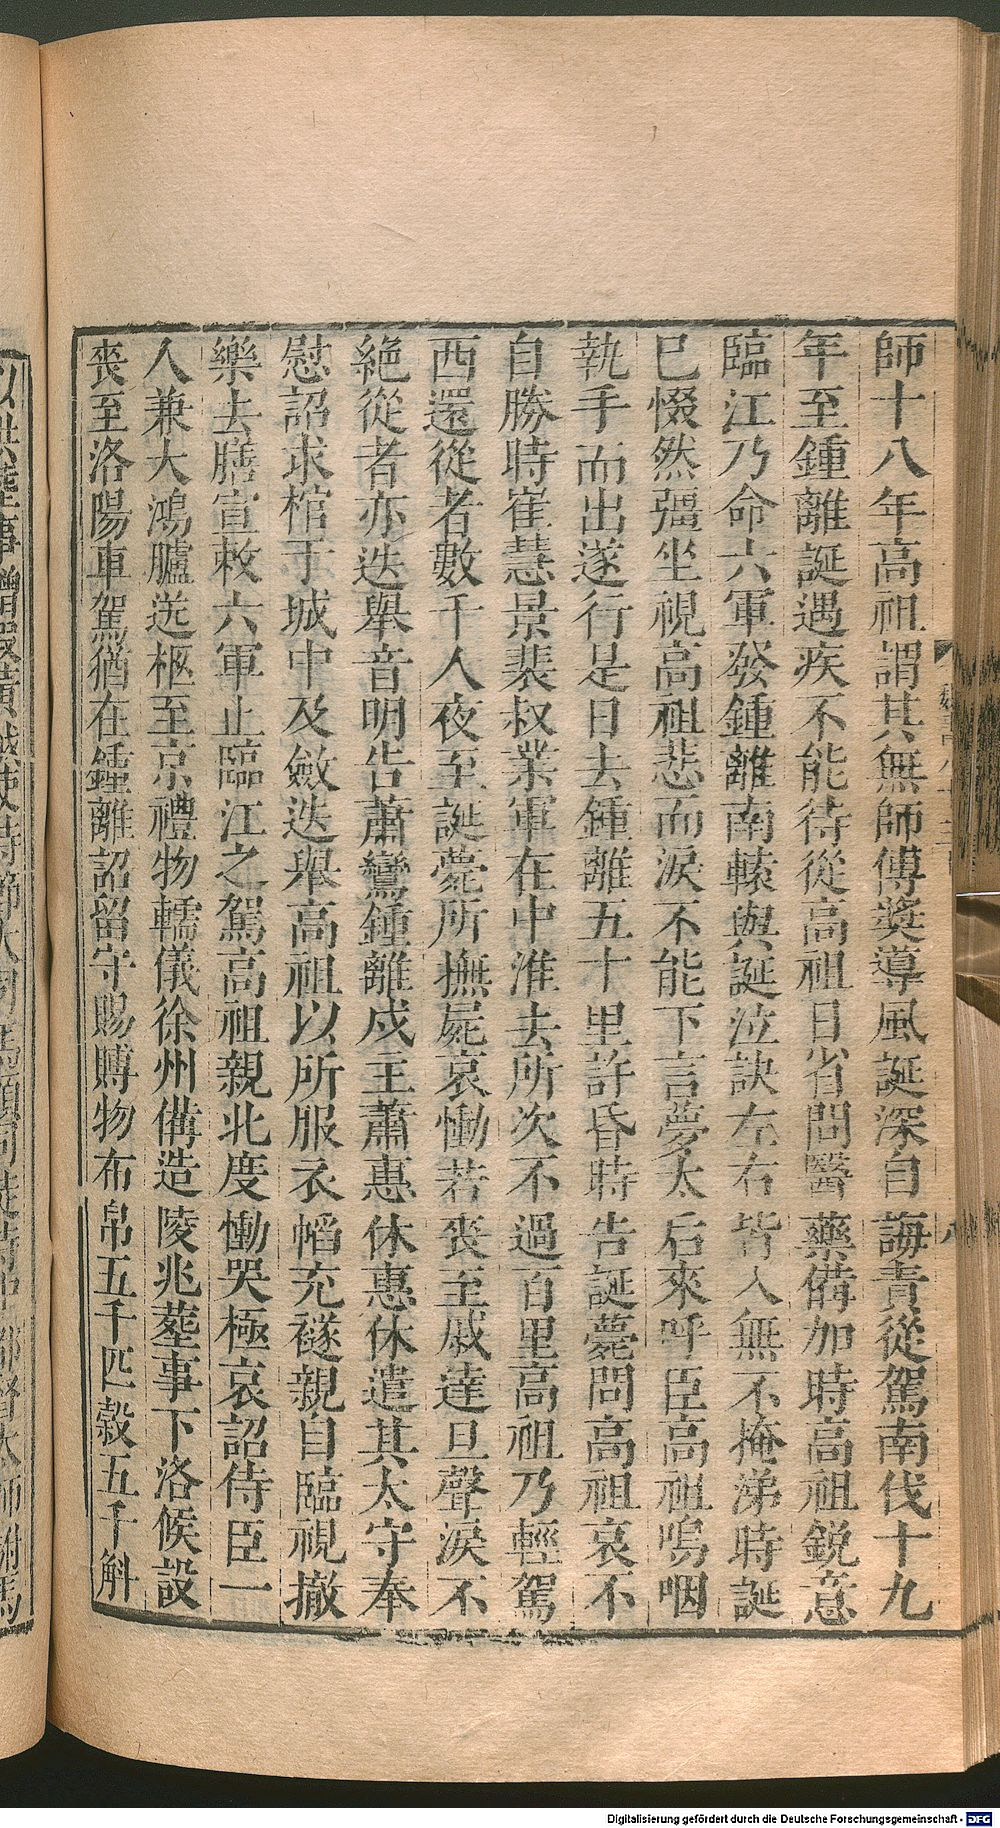 師十八年高祖謂其無師傅獎導風誕深自誨責從駕南伐十九
年至鍾離誕遇疾不能侍從高祖日省問醫藥備加時高祖銳意
臨江乃命六軍發鍾離南轅與誕泣訣左右皆入無不掩涕時誕
已惙然彊坐視高祖悲而淚不能下言夢太后來呼臣高祖嗚咽
執手而出遂行是日去鍾離五十里許昏時告誕薨問高祖哀不
自勝時崔慧景裴叔業軍在中淮去所次不過百里高祖乃輕駕
西還從者數千人夜至誕薨所撫屍哀慟若喪至戚達旦聲淚不
絶從者亦迭舉音明告蕭鸞鍾離戍主蕭惠休惠休遣其太守奉
慰詔求棺于城中及斂迭舉高祖以所服衣幍充襚親自臨視撤
樂去膳宣敕六軍止臨江之駕高祖親北度慟哭極哀詔侍臣一
人兼大鴻臚送柩至京禮物轜儀徐州備造陵兆葬事下洛候設
喪至洛陽車駕猶在鍾離詔留守賜賻物布帛五千匹穀五千斛
Digitalisierung gefördert durch die Deutsche Forschungsgemeinschaft - DFG